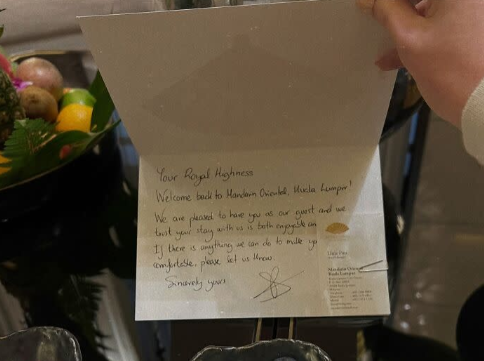 Your Royal Highness
Welcome back to Mandarin Oriental, Kuala Lumpur!
We are pleased to have you as our guest and we
trust your stay with us is both enjoyable an
If there is anything we can do to make yo
comfortable, please let us know.
Sincerely yours
Mandarin Oriental
Kuala Lumpur